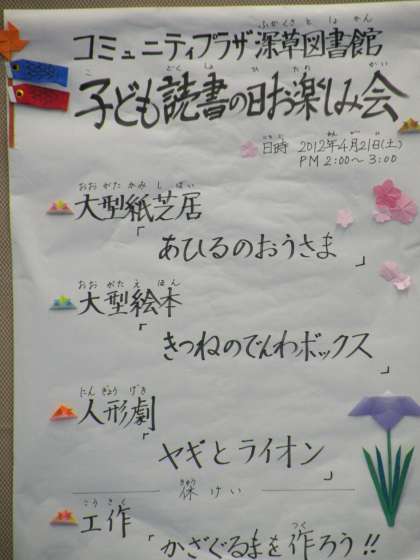 コミュニティプラザ深草図書館
子ども読書の日お楽しみ会
日時 2012年4月21日(土)
PM 2:00〜3:00
大型紙芝居
「あひるのおうさま」
大型絵本
「きつねのでんわボックス」
人形劇
「ヤギとライオン」
休けい
工作
「かざぐるまを作ろう!!